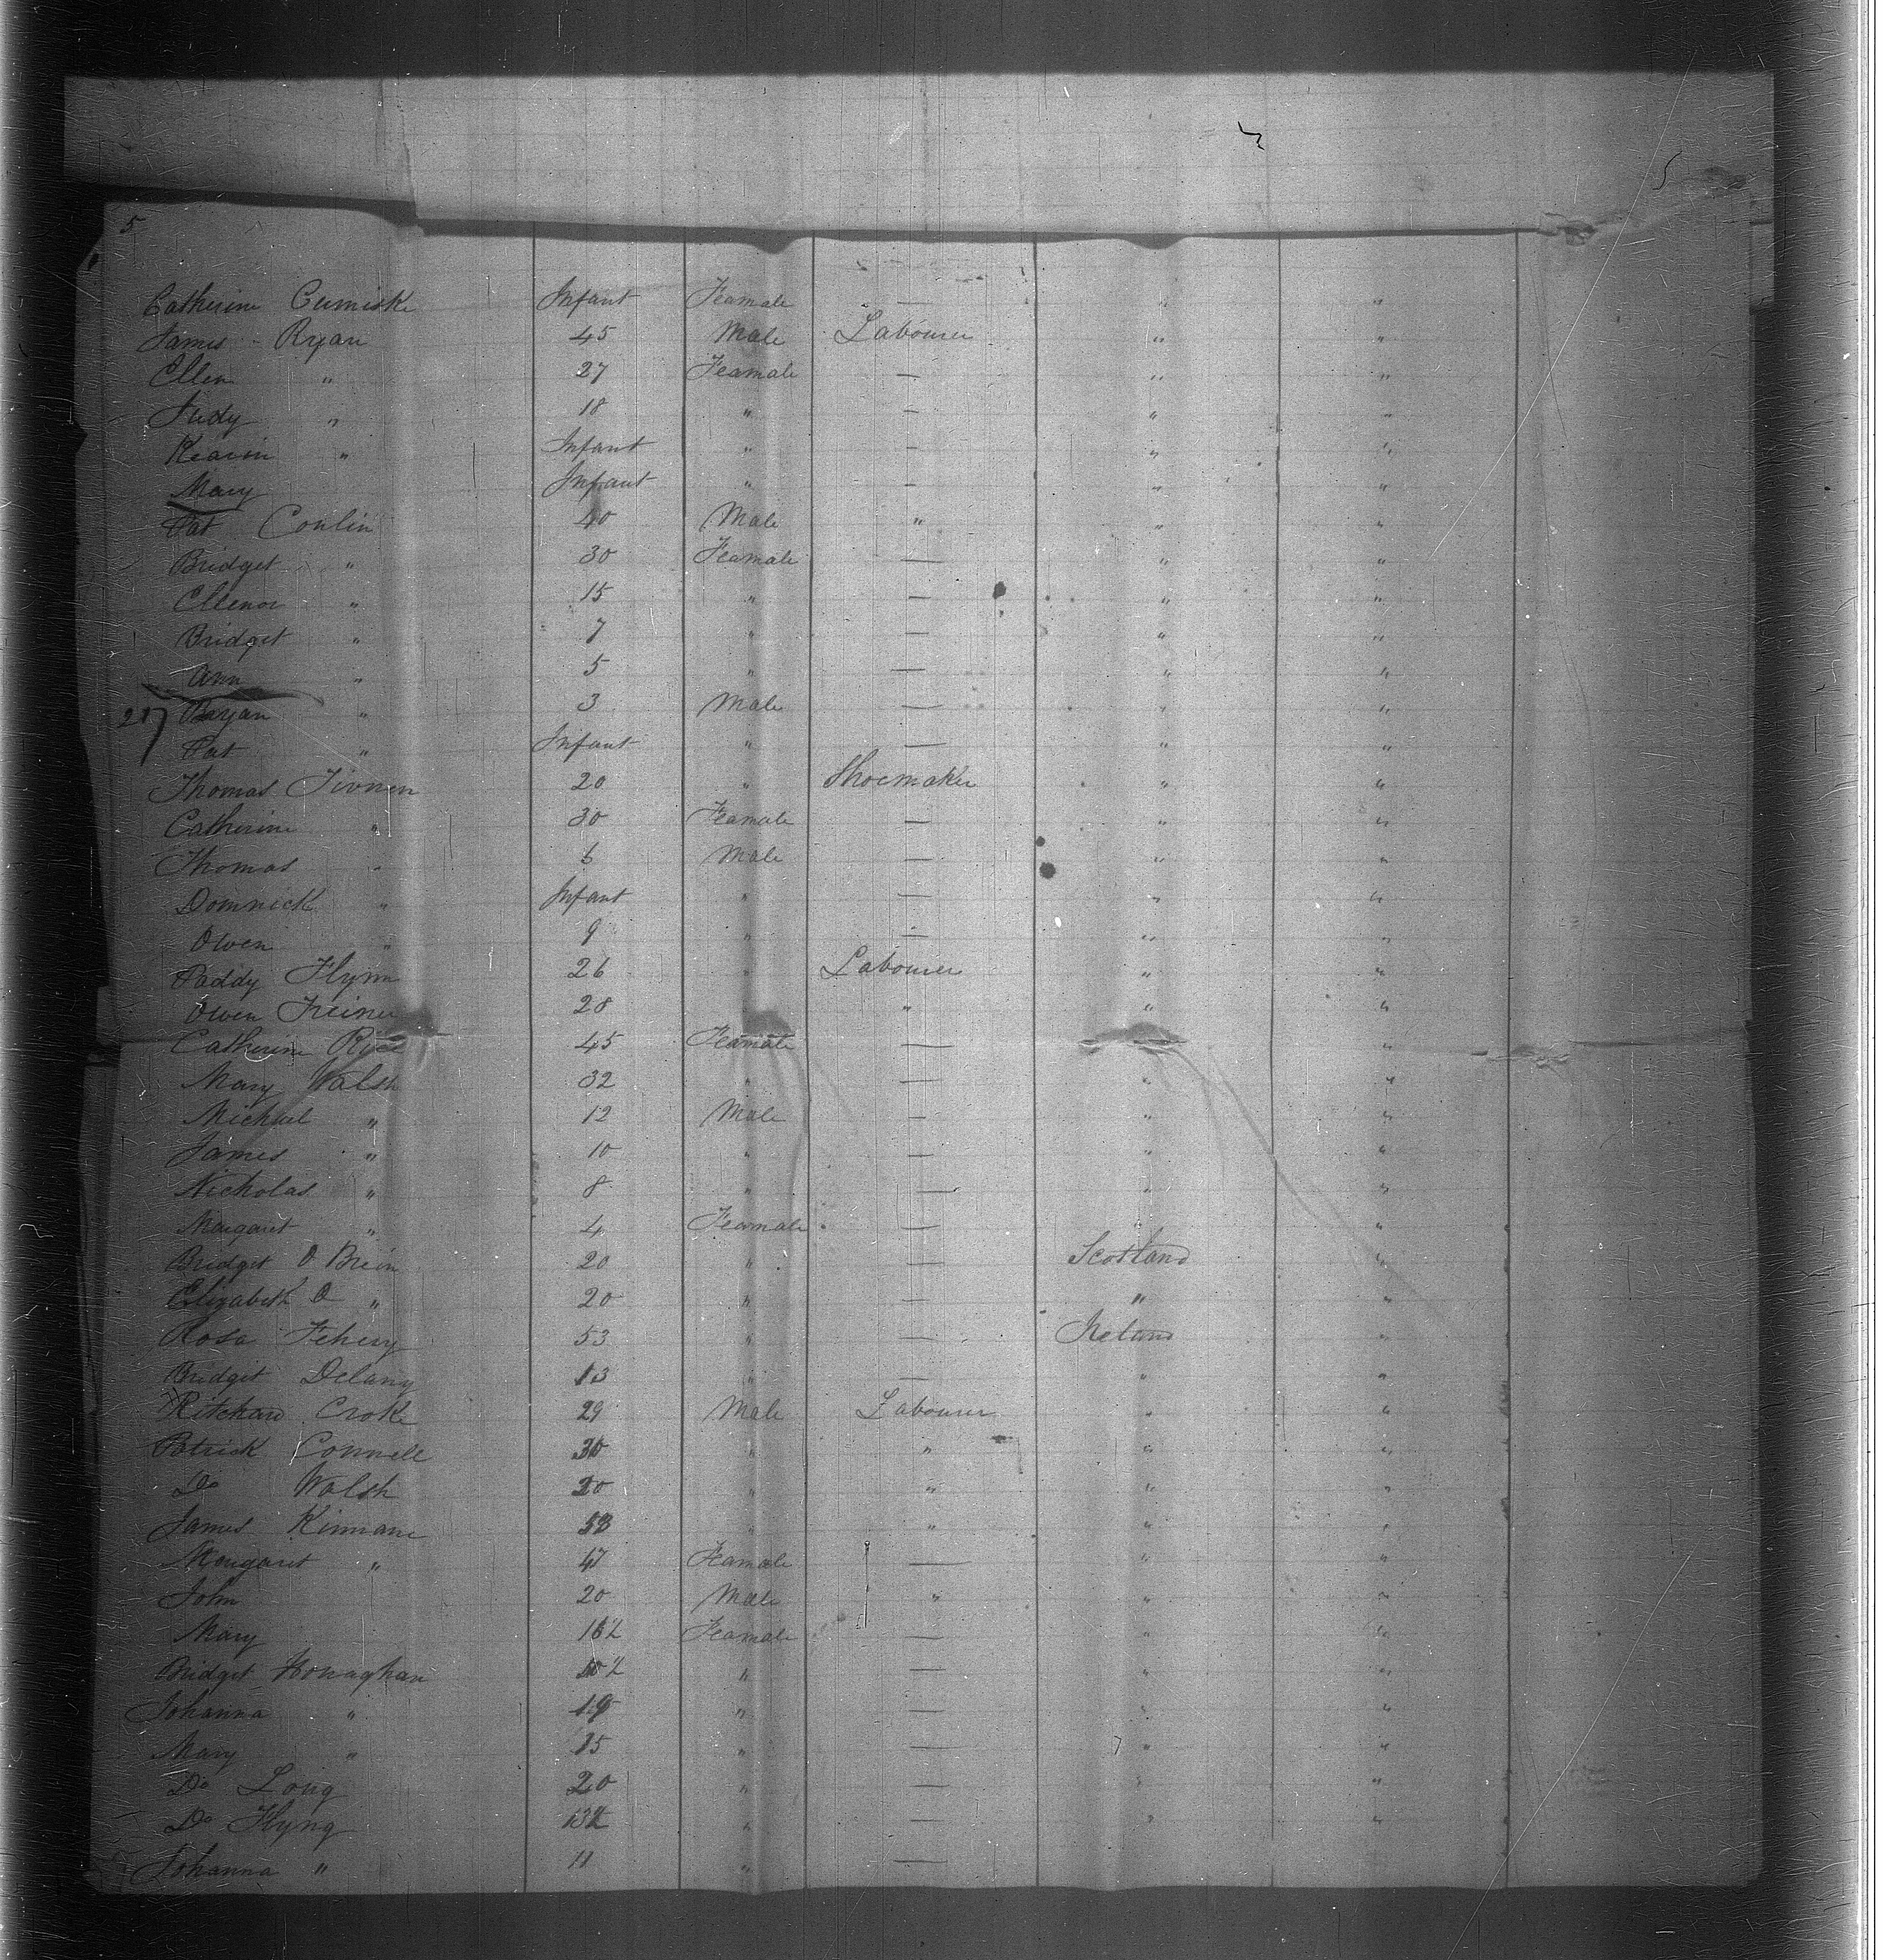 5
Catherine Cumiske Infant Feamale — " "
James - Ryan 45 Male Labourer " "
Ellen " 27 Feamale — " "
Judy " 18 " — " "
" Infant " — " "
Mary Infant " — " "
Pat Conlin 40 Male " " "
Bridget " 30 Feamale — " "
Ellenor " 15 " — " "
Bridget " 7 " — " "
Ann " 5 " — " "
Bryan " 3 Male — " "
Pat " Infant " — " "
Thomas 20 " Shoemaker " "
Catherine " 30 Feamale — " "
Thomas " 6 Male — " "
Domnick " Infant " — " "
Owen " 9 " — " "
Paddy Flynn 26 " Labourer " "
Owen 28 " " " "
Catherine Rice 45 Feamale — "
Mary Walsh 32 " — " "
Michael " 12 Male — " "
James " 10 " — " "
Nicholas " 8 " — " "
Margaret " 4 Feamale — "
Bridget O Brein 20 " — Scotland "
Elizabeth O " 20 " — " "
Rosa Fehery 53 " — Ireland "
Bridget Delany 13 " — " "
Ritchard Croke 29 Male Labourer " "
Patrick Connell 30 " " " "
Do Walsh 20 " " " "
James Kinnane " " " "
Margaret " 47 Feamale — " "
John 20 Male " " "
Mary Feamale — " "
Bridget Honaghan " — " "
Johanna " 19 " — " "
Mary " 15 " — " "
Do Long 20 " — " "
Do Flyng " — " "
Johanna " 11 " —